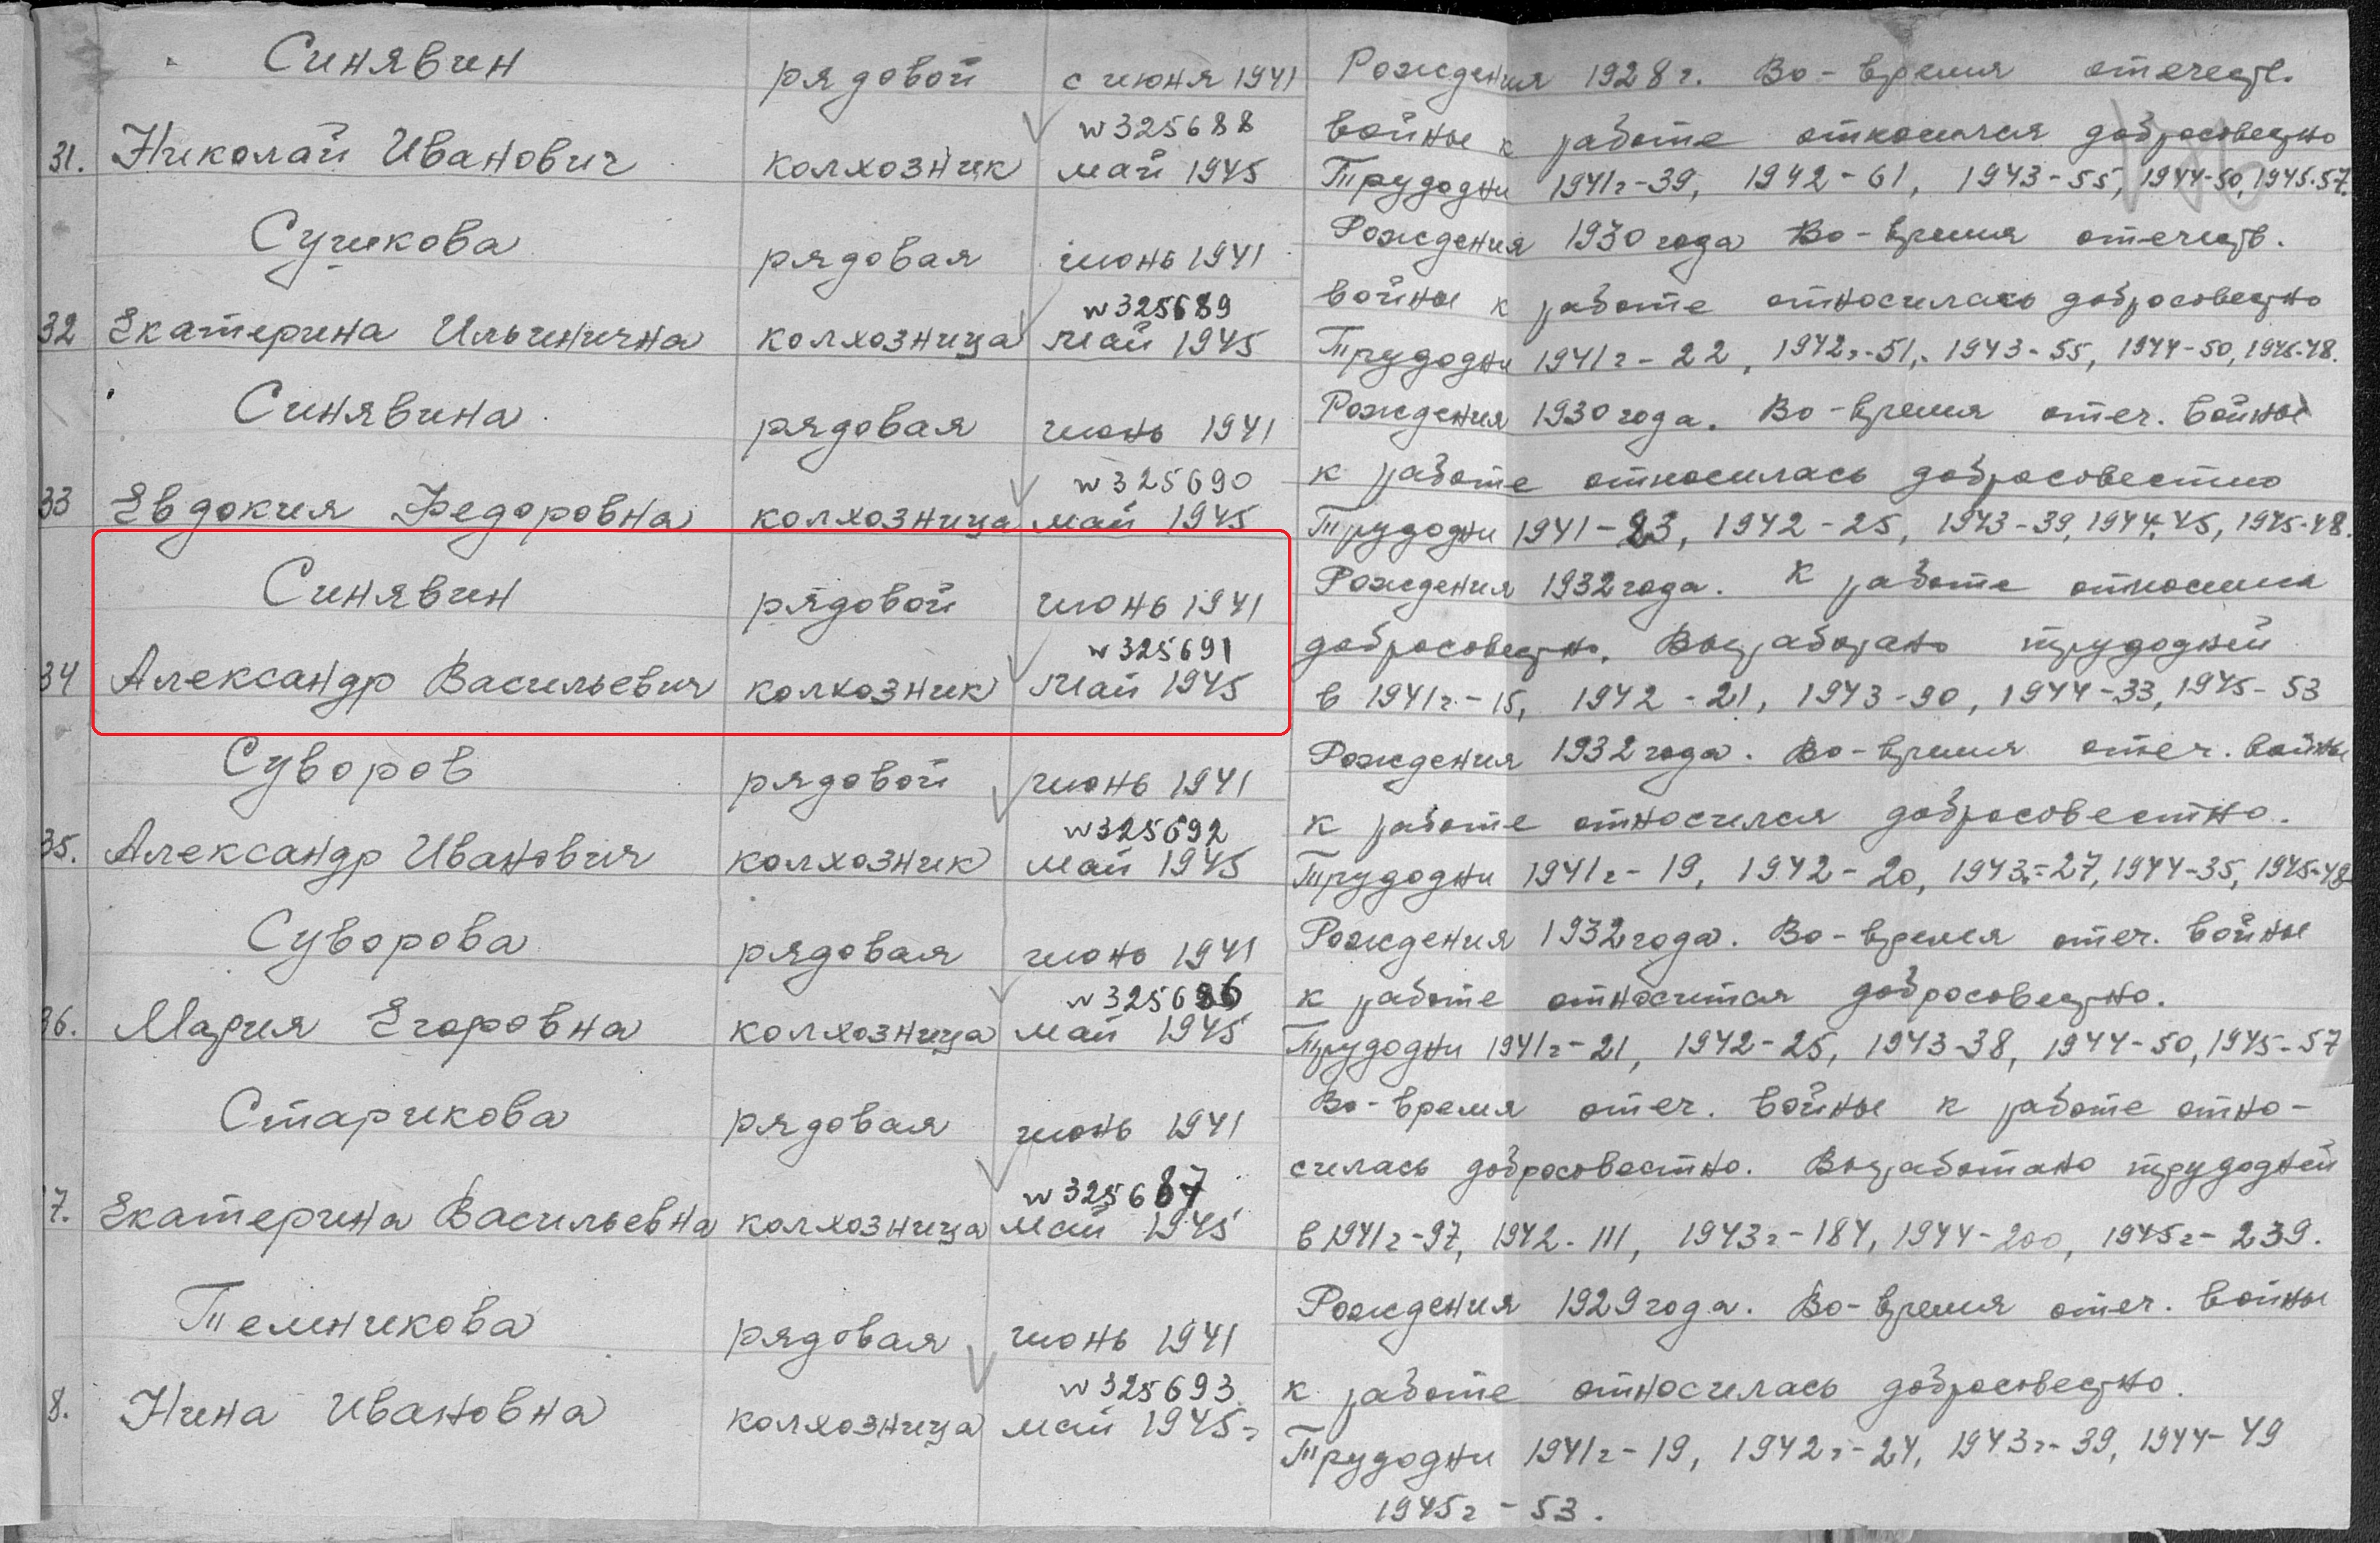 Синявин рядовой с июня 1941 Рождения 1928 г. Во-время отечеств.
№325688 войны к работе относился добросовестно
31. Николай Иванович колхозник май 1945 Трудодни 1941г-39, 1942-61, 1943-55, 1944-50, 1945-57.
Сушкова рядовая июнь 1941 Рождения 1930 года Во-время отечеств.
№325689 войны к работе относилась добросовестно
32 Екатерина Ильинична колхозница май 1945 Трудодни 1941г-22, 1942г-51, 1943-55, 1944-50, 1945-48.
Синявина рядовая июнь 1941 Рождения 1930 года. Во-время отеч. войны
№325690 к работе относилась добросовестно
33 Евдокия Федоровна колхозница май 1945 Трудодни 1941-23, 1942-25, 1943-39, 1944-45, 1945-48.
Синявин рядовой июнь 1941 Рождения 1932 года. К работе относился
№325691 добросовестно. Выработано трудодней
34 Александр Васильевич колхозник май 1945 в 1941г-15, 1942-21, 1943-90, 1944-33, 1945-53
Суворов рядовой июнь 1941 Рождения 1932 года. Во-время отеч. войны
№325692 к работе относился добросовестно.
35. Александр Иванович колхозник май 1945 Трудодни 1941г-19, 1942-20, 1943-27, 1944-35, 1945-48
Суворова рядовая июнь 1941 Рождения 1932 года. Во-время отеч. войны
№325686 к работе относится добросовестно.
36. Мария Егоровна колхозница май 1945 Трудодни 1941г-21, 1942-25, 1943-38, 1944-50, 1945-57
Старикова рядовая июнь 1941 Во-время отеч. войны к работе отно-
№325687 силась добросовестно. Выработано трудодней
7. Екатерина Васильевна колхозница май 1945 в 1941г-97, 1942-111, 1943г-184, 1944-200, 1945г-239.
Темникова рядовая июнь 1941 Рождения 1929 года. Во-время отеч. войны
№325693 к работе относилась добросовестно.
8. Нина Ивановна колхозница май 1945г Трудодни 1941г-19, 1942г-24, 1943г-39, 1944-49
1945г-53.